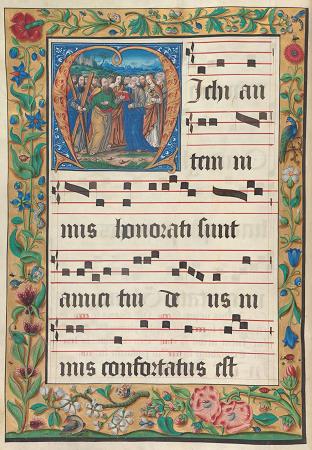 M Ichi au
tem ni
mis honorati sunt
amici tui de us ni
mis confortatus est